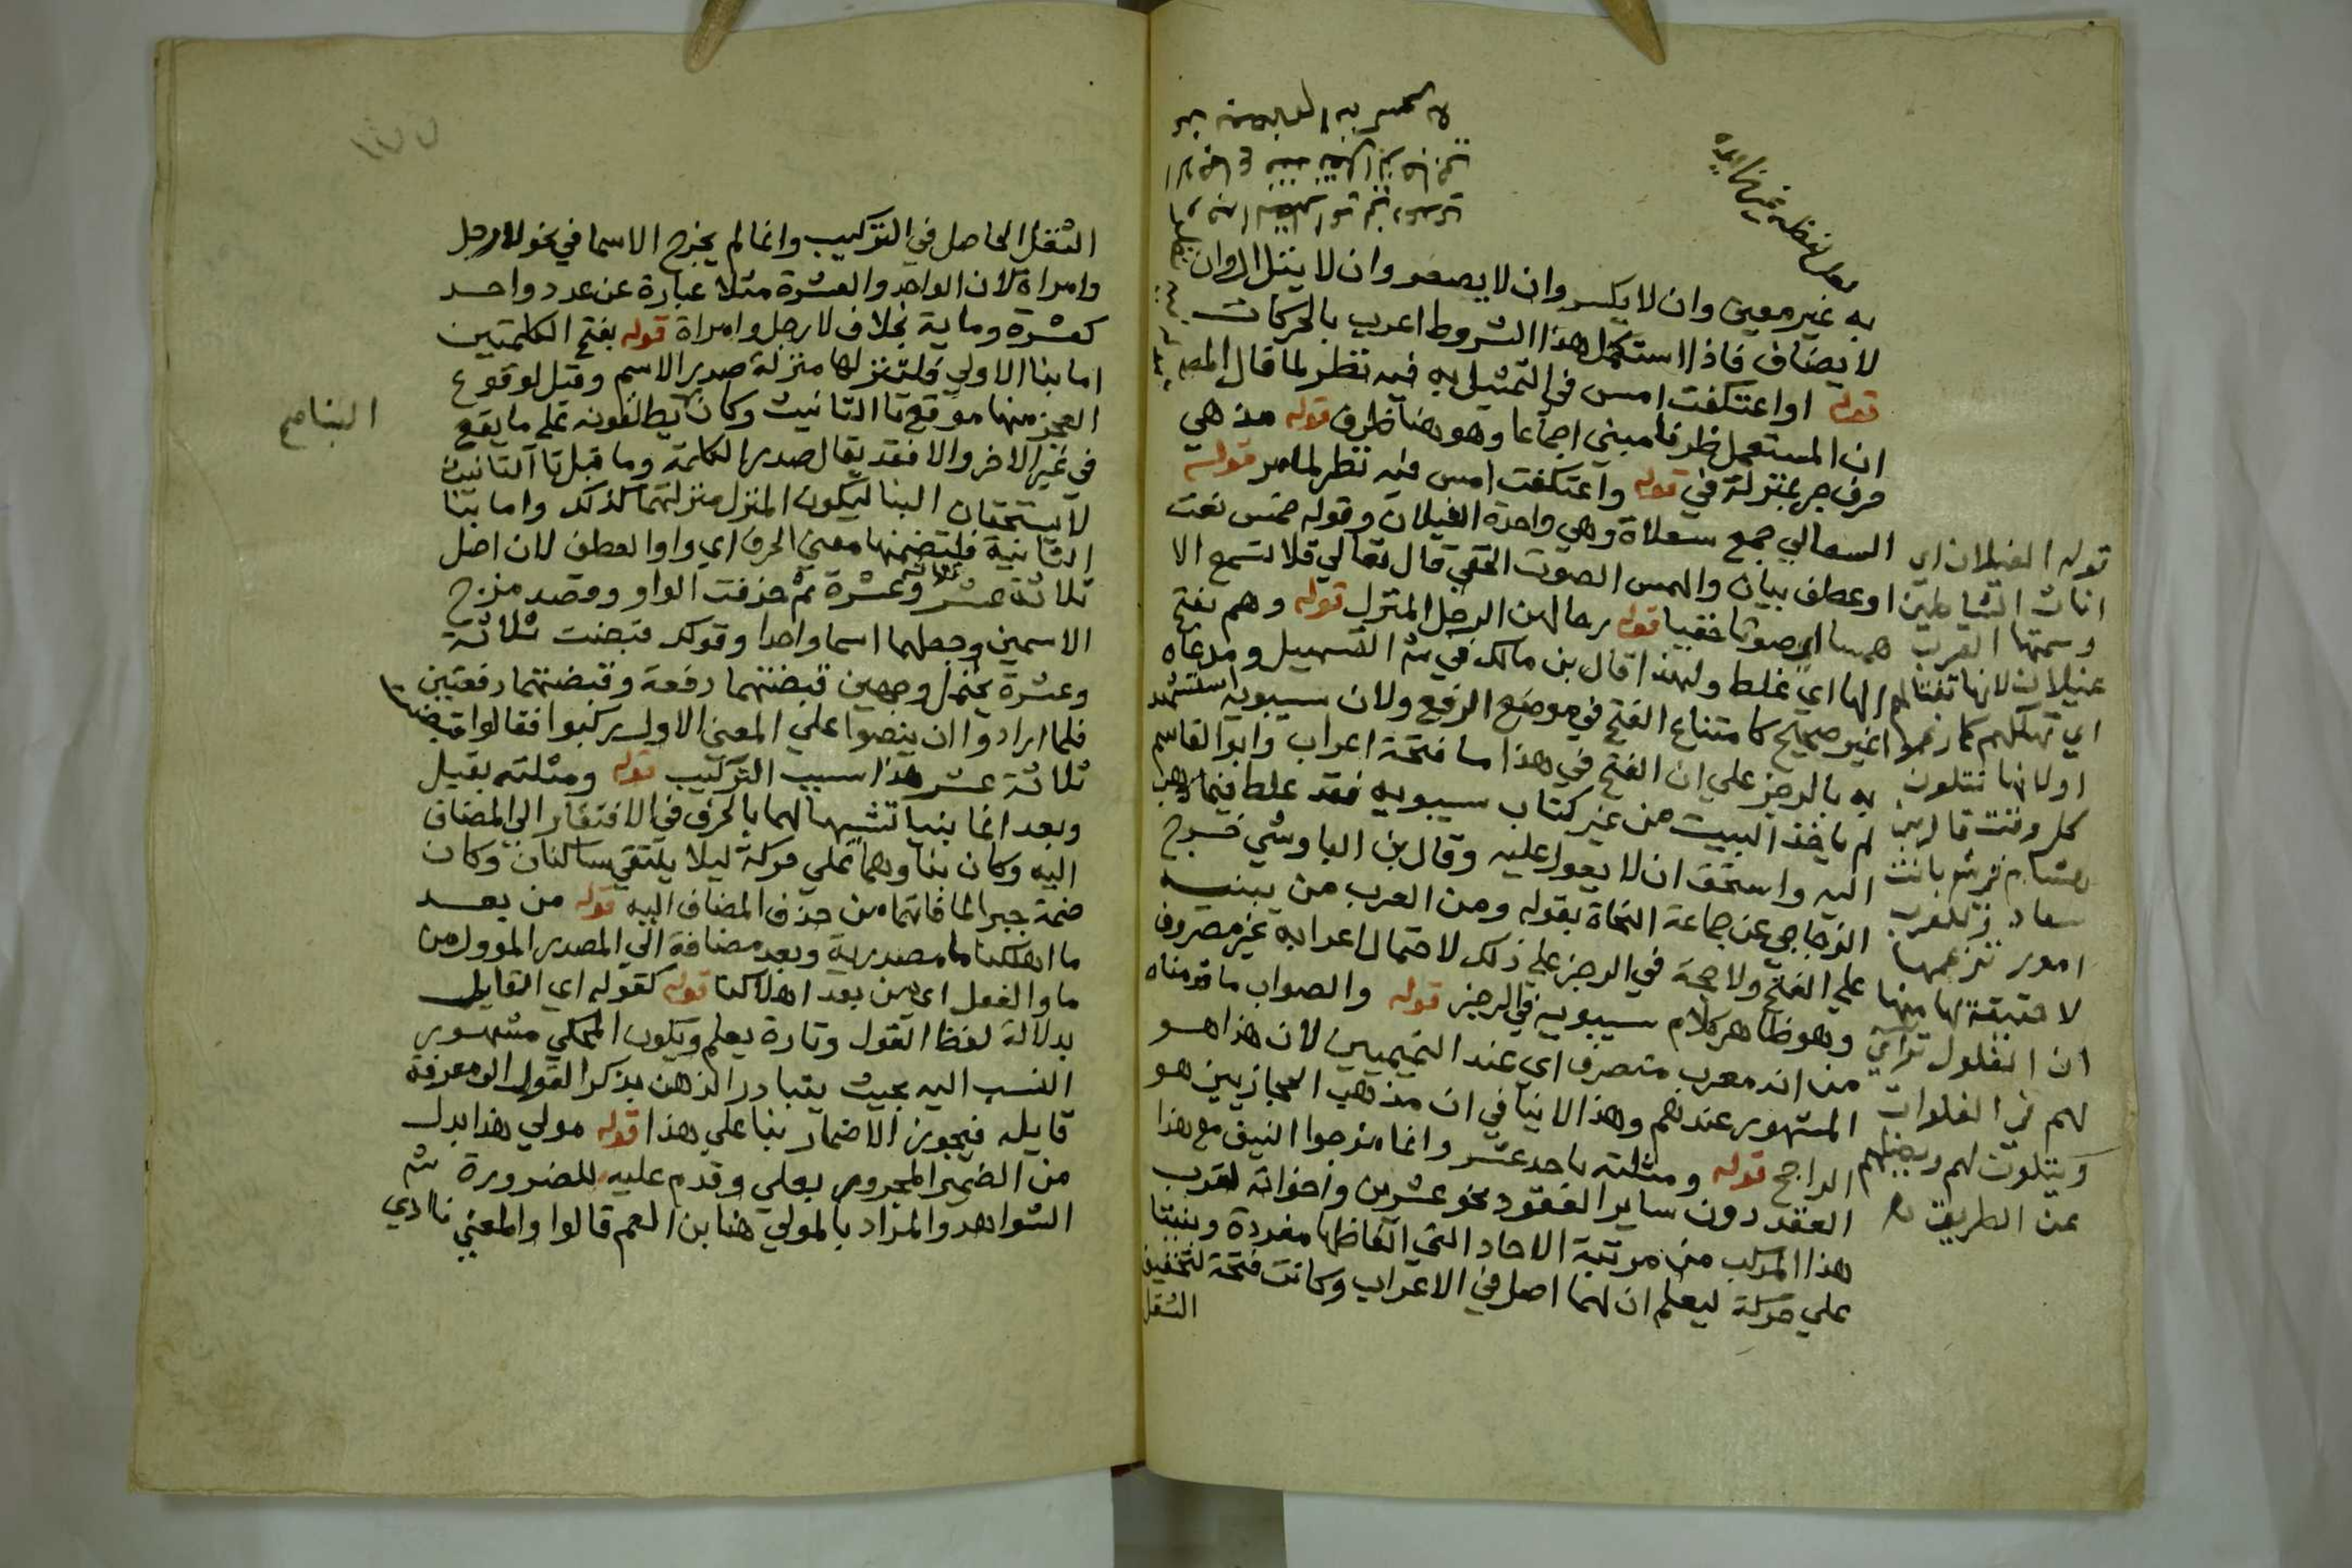 به غير معين وان لا يكسر وان لا يصغر وان لا يثني الوان
لا يضاف فاذا استكمل هذا الشروط اعرب بالحركات
قوله او اعتكفت امس في التمثيل به فيه نظر لما قال المص
ان المستعمل ظرفا مبني اجماعا وهو هنا ظرف قوله مذ هي
حرف جر بمنزلة في قوله واعتكفت امس فيه نظر لما مر قوله
السعالي جمع سعلاة وهي واحدة الغيلان وقوله خمس نعت
او عطف بيان والهمس الصوت الخفي قال تعالي فلا تسمع الا
همسا اي صوتا خفيا قوله رحالهن الرحل المنزل قوله وهم بفتح
الها اي غلط ولهذا قال بن مالك في شر التسهيل ومدعاه
غير صحيح كامتناع الفتح في موضع الرفع ولان سيبويه استشهد
به بالرجز علي ان الفتح في هذا مسا فتحة اعراب وابو القاسم
لم ياخذ البيت من غير كتاب سيبويه فقد غلط فيما ذهب
اليه واستحق ان لا يعول عليه وقال بن الباوشي خرج
الزجاجي عن جماعة النحاة بقوله ومن العرب من يبنيه
علي الفتح ولا حجة في الرجز علي ذلك لاحتمال اعرابه غير مصروف
وهو ظاهر كلام سيبويه في الرجز قوله والصواب ما قدمناه
من انه معرب متصرف اي عند التميميين لان هذا هو
المشهور عندهم وهذا لا ينافي ان مذهب الحجازيين هو
الراجح قوله ومثلته باحد عشر وانما مزجوا النيف مع هذا
العقد دون ساير العقود نحو عشرين واخواته لقرب
هذا المركب من مرتبة الاحاد التي الفاظها مفردة وبنيتا
علي حركة ليعلم ان لهما اصل في الاعراب وكانت فتحة لتخفيف
الثقل
قوله الغيلان اي
اناث الشياطين
وسمتها العرب
غيلان لانها تغتالهم
اي تهلكهم كما زعموا
اولانها تتلون
كل وقت قال بن
هشام في شر بانت
سعاد وللعرب
امور تزعمها
لا حقيقة لها منها
ان الغلول تراي
لهم في الفلوات
وتتلون لهم وتضلهم
عن الطريق
الثقل الحاصل في التركيب وانما لم يخرج الاسما في نحو لا رجل
وامراة لان الواحد والعشرة مثلا عبارة عن عدد واحد
كعشرة وماية بخلاف لا رجل وامراة قوله بفتح الكلمتين
اما بنا الاولي فلتنزلها منزلة صدر الاسم وقيل لوقوع
العجز منها موقع تا التانيث وكان يطلقونه علي ما يقع
في غير الاخر والا فقد يقال صدر الكلمة وما قبل تا التانيث
لا يستحقان البنا ليكون المنزل منزلتهما كذلك واما بنا
الثانية فلتضمنها معني الحرف اي واو العطف لان اصل
ثلاثة عشر ثلاثة وعشرة ثم حذفت الواو وقصد مزج
الاسمين وجعلهما اسما واحدا وقولك قبضت ثلاثة
وعشرة يحتمل وجهين قبضتهما دفعة وقبضتهما دفعتين
فلما ارادوا ان ينصوا علي المعني الاول ركبوا فقالوا قبضت
ثلاثة عشر هذا سبب التركيب قوله ومثلته بقبل
وبعد انما بنيا تشبيها لهما بالحرف في الافتقار الي المضاف
اليه وكان بناوهما علي حركة ليلا يلتقي ساكنان وكان
ضمة جبرا لما فاتهما من حذف المضاف اليه قوله من بعد
ما اهلكنا ما مصدرية وبعد مضافة الي المصدر المؤول من
ما والفعل اي من بعد اهلاكنا قوله كقوله اي القايل
بدلالة لفظ القول وتارة يعلم ويكون المحكي مشهور
النسب اليه بحيث يتبادر الذهن بذكر القول الي معرفة
قايله فيجوز الاضمار بنا علي هذا قوله مولي هذا بدل
من الضمير المجرور بعلي وقدم عليه للضرورة شر
الشواهد والمراد بالمولي هنا بن العم قالوا والمعني نادي
البنا صح